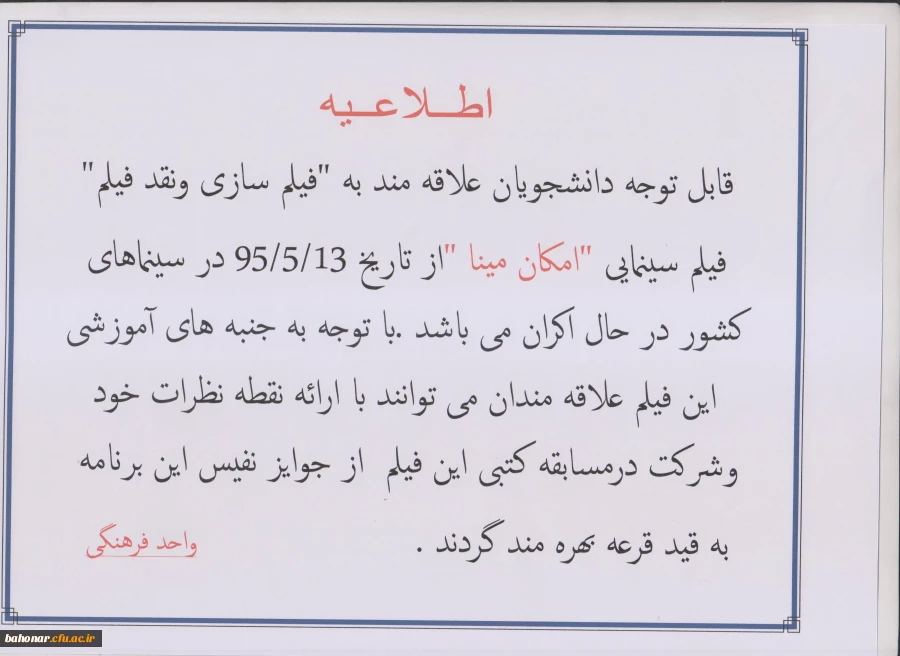 اطـلاعـیه
قابل توجه دانشجویان علاقه مند به "فیلم سازی ونقد فیلم"
فیلم سینمایی "امکان مینا "از تاریخ 95/5/13 در سینماهای
کشور در حال اکران می باشد .با توجه به جنبه های آموزشی
این فیلم علاقه مندان می توانند با ارائه نقطه نظرات خود
وشرکت درمسابقه کتبی این فیلم از جوایز نفیس این برنامه
به قید قرعه بهره مند گردند .
واحد فرهنگی
bahonar.cfu.ac.ir